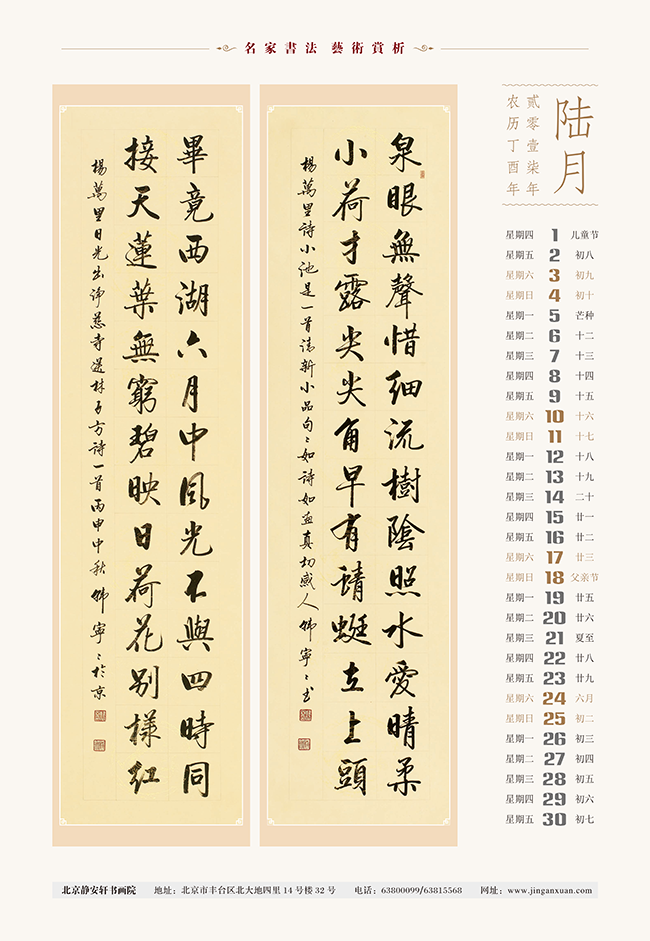 名家書法 藝術賞析
陆月
贰零壹柒年
农历丁酉年
泉眼無聲惜細流樹陰照水愛晴柔
小荷才露尖尖角早有蜻蜓立上頭
楊萬里詩小池是一首清新小品句〻如詩如画真切感人
畢竟西湖六月中風光不與四時同
接天蓮葉無窮碧映日荷花别樣紅
楊萬里曉出淨慈寺送林子方詩一首丙申中秋
星期四 1 儿童节
星期五 2 初八
星期六 3 初九
星期日 4 初十
星期一 5 芒种
星期二 6 十二
星期三 7 十三
星期四 8 十四
星期五 9 十五
星期六 10 十六
星期日 11 十七
星期一 12 十八
星期二 13 十九
星期三 14 二十
星期四 15 廿一
星期五 16 廿二
星期六 17 廿三
星期日 18 父亲节
星期一 19 廿五
星期二 20 廿六
星期三 21 夏至
星期四 22 廿八
星期五 23 廿九
星期六 24 六月
星期日 25 初二
星期一 26 初三
星期二 27 初四
星期三 28 初五
星期四 29 初六
星期五 30 初七
北京静安轩书画院 地址：北京市丰台区北大地四里 14 号楼 32 号 电话：63800099/63815568 网址：www.jinganxuan.com